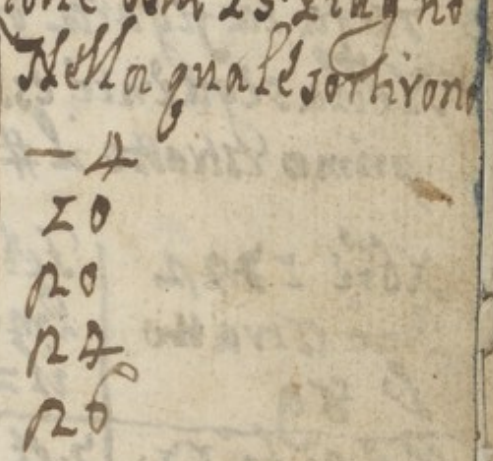 15 Giugno
Nella quale sortirono
— 4
10
20
24
26